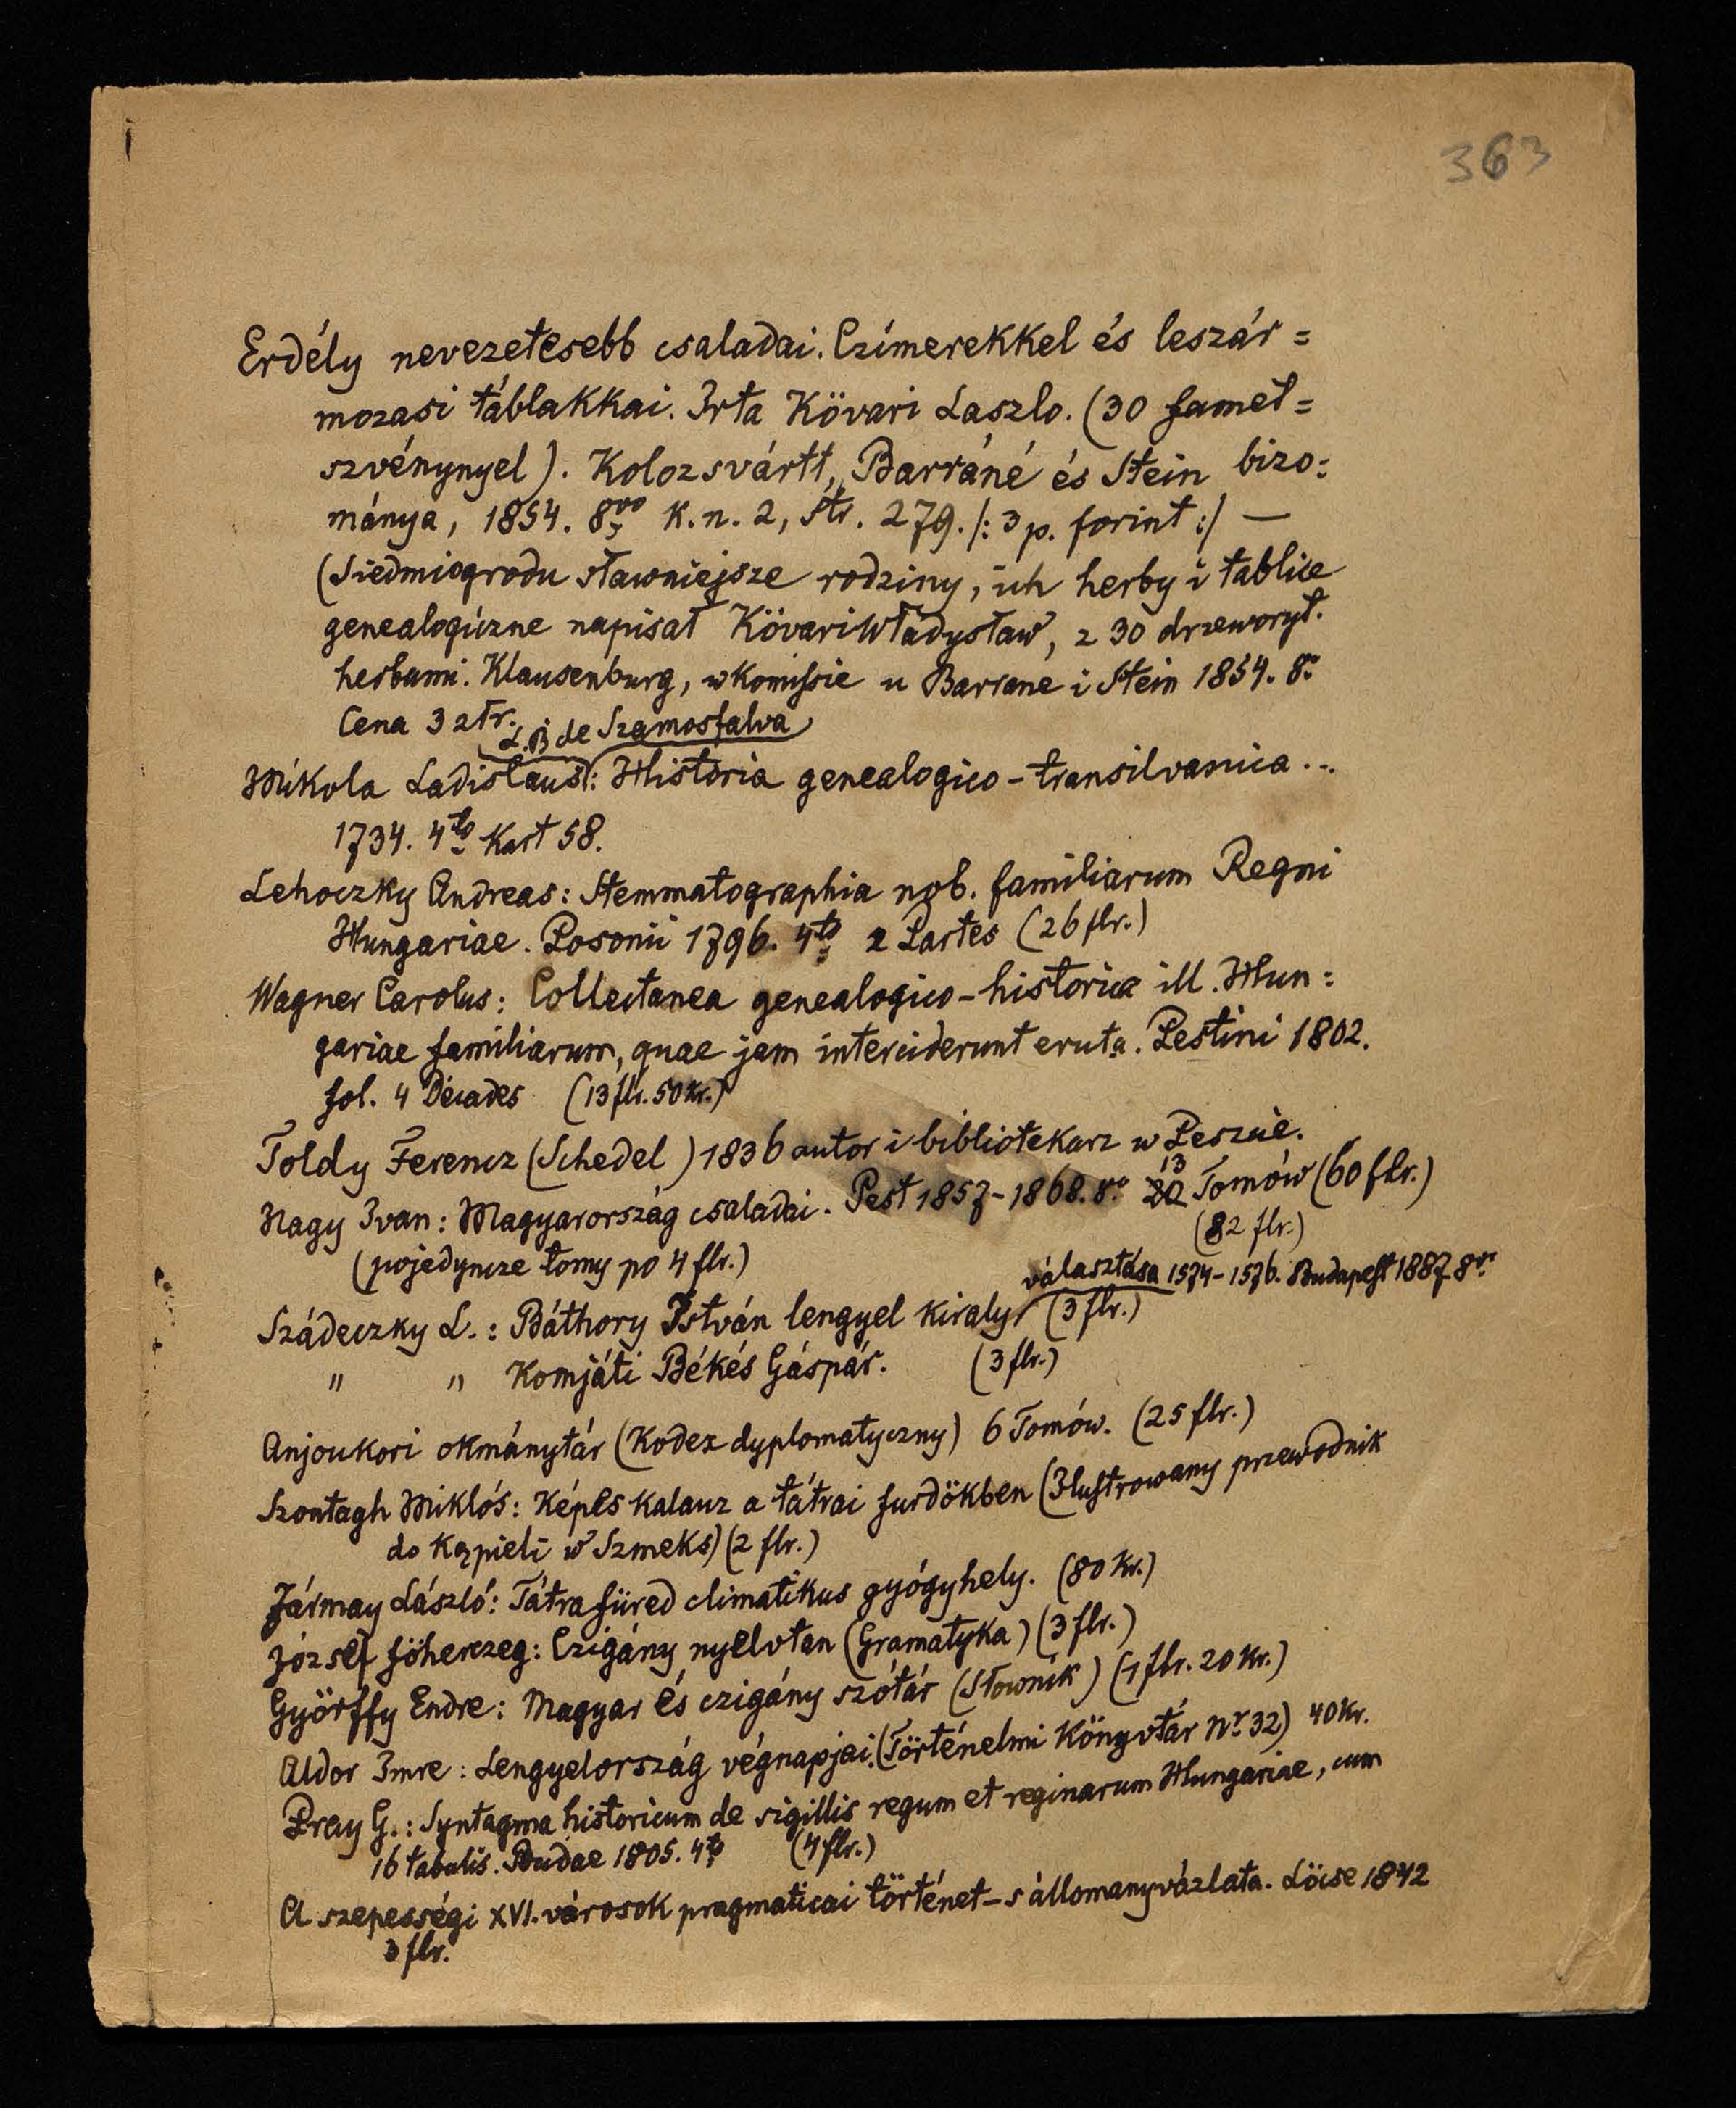 363
Erdély nevezetesebb csaladai. Czímerekkel és leszár=
mozasi táblakkai. Irta Kövari Laszlo. (30 famet=
szvénynyel). Kolozsvártt, Barráné és Stein bizo=
mánya, 1854. 8vo K.n. 2, str. 279. /: 3 p. forint :/ —
(Siedmiogrodu sławniejsze rodziny, ich herby i tablice
genealogiczne napisał Kövari Władysław, z 30 drzeworyt.
herbami. Klausenburg, w Komissie u Barrané i Stein 1854. 8o
Cena 3 złr.
L. B de Szamosfalva
Mikola Ladislaus: Historia genealogico-transilvanica...
1734. 4to Kart 58.
Lehoczky Andreas: Stemmatographia nob. familiarum Regni
Hungariae. Posonii 1796. 4to 2 Partes (26 flr.)
Wagner Carolus: Collectanea genealogico-historica ill. Hun=
gariae familiarum, quae jam interciderunt eruta. Pestini 1802.
fol. 4 Decades (13 flr. 50 Kr.)
Toldy Ferencz (Schedel) 1836 autor i bibliotekarz w Peszcie.
Nagy Ivan: Magyarország csaladai. Pest 1857-1868. 8o 20 13 Tomów (60 flr.)
(82 flr.)
(pojedyncze tomy po 4 flr.)
választása 1574-1576. Budapest 1887 8vo
Szádeczky L.: Báthory István lengyel kiraly (3 flr.)
" " Komjáti Békés Gáspár. (3 flr.)
Anjoukori okmánytár (Kodex dyplomatyczny) 6 Tomów. (25 flr.)
Szontagh Miklós: Képes Kalauz a tátrai furdökben (Ilustrowany przewodnik
do Kąpieli w Szmeks) (2 flr.)
Jármay László: Tátrafüred climatikus gyógyhely. (80 Kr.)
József föherczeg: Czigány nyelvtan (Gramatyka) (3 flr.)
Györffy Endre: Magyar és czigány szótár (Słownik) (1 flr. 20 Kr.)
Aldor Imre: Lengyelország végnapjai. (Történelmi Könyvtár Nr. 32) 40 Kr.
Pray G.: Syntagma historicum de sigillis regum et reginarum Hungariae, cum
16 tabulis. Budae 1805. 4to (4 flr.)
A szepességi XVI. városok pragmaticai történet-s állomanyvázlata. Löcse 1842
3 flr.